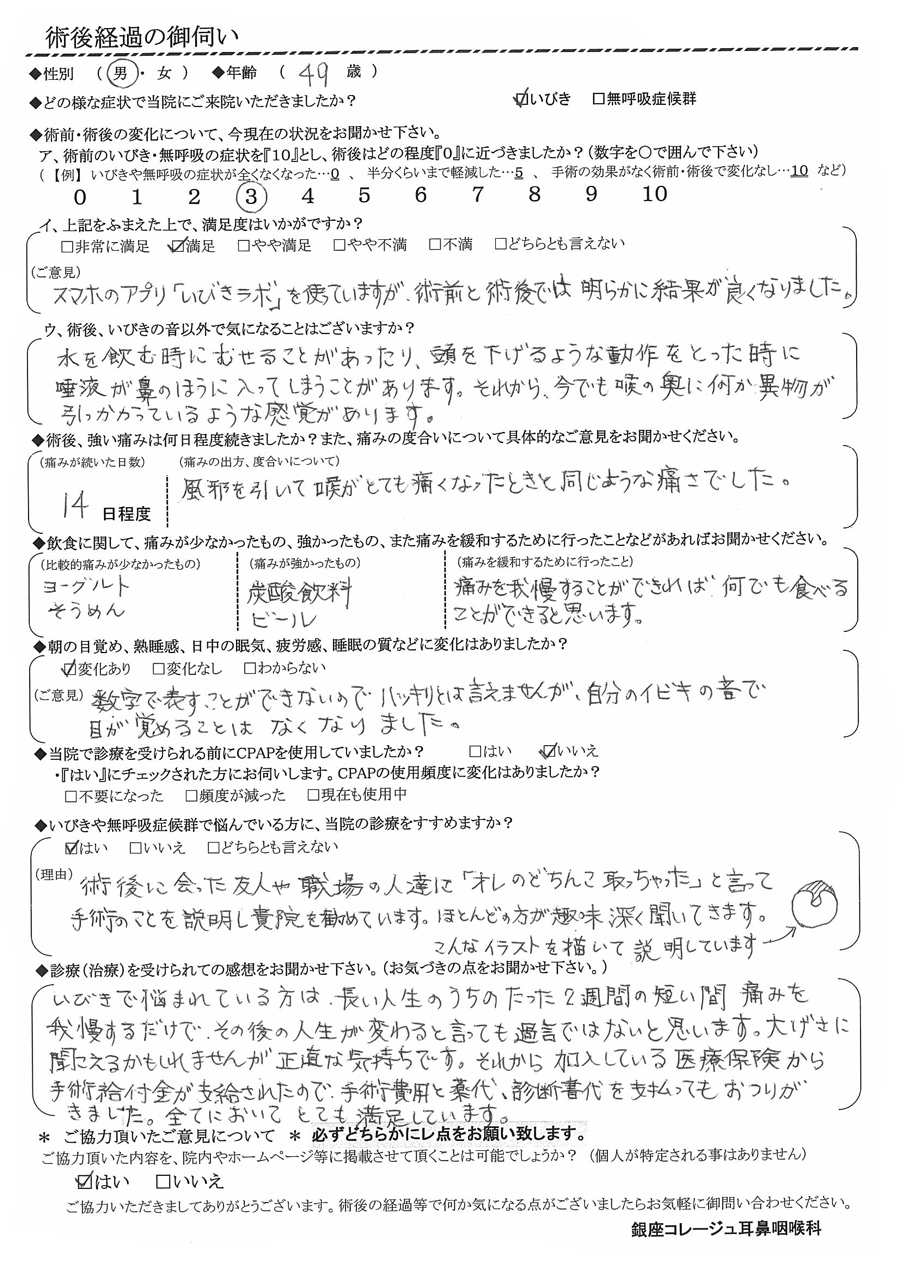 術後経過の御伺い
◆性別 ( 男 ・ 女 ) ◆年齢 ( 49 歳 )
◆どの様な症状で当院にご来院いただきましたか? ☑いびき □無呼吸症候群
◆術前・術後の変化について、今現在の状況をお聞かせ下さい。
ア、術前のいびき・無呼吸の症状を『10』とし、術後はどの程度『0』に近づきましたか?(数字を〇で囲んで下さい)
(【例】 いびきや無呼吸の症状が全くなくなった…0 、 半分くらいまで軽減した…5 、 手術の効果がなく術前・術後で変化なし…10 など)
0 1 2 3 4 5 6 7 8 9 10
イ、上記をふまえた上で、満足度はいかがですか?
□非常に満足 ☑満足 □やや満足 □やや不満 □不満 □どちらとも言えない
(ご意見)
スマホのアプリ「いびきラボ」を使っていますが、術前と術後では 明らかに結果が良くなりました。
ウ、術後、いびきの音以外で気になることはございますか?
水を飲む時にむせることがあったり、頭を下げるような動作をとった時に
唾液が鼻のほうに入ってしまうことがあります。それから、今でも喉の奥に何か異物が
引っかかっているような感覚があります。
◆術後、強い痛みは何日程度続きましたか?また、痛みの度合いについて具体的なご意見をお聞かせください。
(痛みが続いた日数) (痛みの出方、度合いについて)
風邪を引いて喉がとても痛くなったときと同じような痛さでした。
14 日程度
◆飲食に関して、痛みが少なかったもの、強かったもの、また痛みを緩和するために行ったことなどがあればお聞かせください。
(比較的痛みが少なかったもの) (痛みが強かったもの) (痛みを緩和するために行ったこと)
ヨーグルト 炭酸飲料 痛みを我慢することができれば 何でも食べる
そうめん ビール ことができると思います。
◆朝の目覚め、熟睡感、日中の眠気、疲労感、睡眠の質などに変化はありましたか?
☑変化あり □変化なし □わからない
(ご意見) 数字で表すことができないのでハッキリとは言えませんが、自分のイビキの音で
目が覚めることは なくなりました。
◆当院で診療を受けられる前にCPAPを使用していましたか? □はい ☑いいえ
・『はい』にチェックされた方にお伺いします。CPAPの使用頻度に変化はありましたか?
□不要になった □頻度が減った □現在も使用中
◆いびきや無呼吸症候群で悩んでいる方に、当院の診療をすすめますか?
☑はい □いいえ □どちらとも言えない
(理由) 術後に会った友人や職場の人達に「オレのどちんこ取っちゃった」と言って
手術のことを説明し貴院を勧めています。ほとんどの方が趣味深く聞いてきます。
こんなイラストを描いて説明しています
◆診療(治療)を受けられての感想をお聞かせ下さい。(お気づきの点をお聞かせ下さい。)
いびきで悩まれている方は、長い人生のうちのたった2週間の短い間 痛みを
我慢するだけで、その後の人生が変わると言っても過言ではないと思います。大げさに
聞こえるかもしれませんが正直な気持ちです。それから加入している医療保険から
手術給付金が支給されたので、手術費用と薬代、診断書代を支払っても おつりが
きました。全てにおいて とても満足しています。
＊ ご協力頂いたご意見について ＊ 必ずどちらかにレ点をお願い致します。
ご協力頂いた内容を、院内やホームページ等に掲載させて頂くことは可能でしょうか? (個人が特定される事はありません)
☑はい □いいえ
ご協力いただきましてありがとうございます。術後の経過等で何か気になる点がございましたらお気軽に御問い合わせください。
銀座コレージュ耳鼻咽喉科